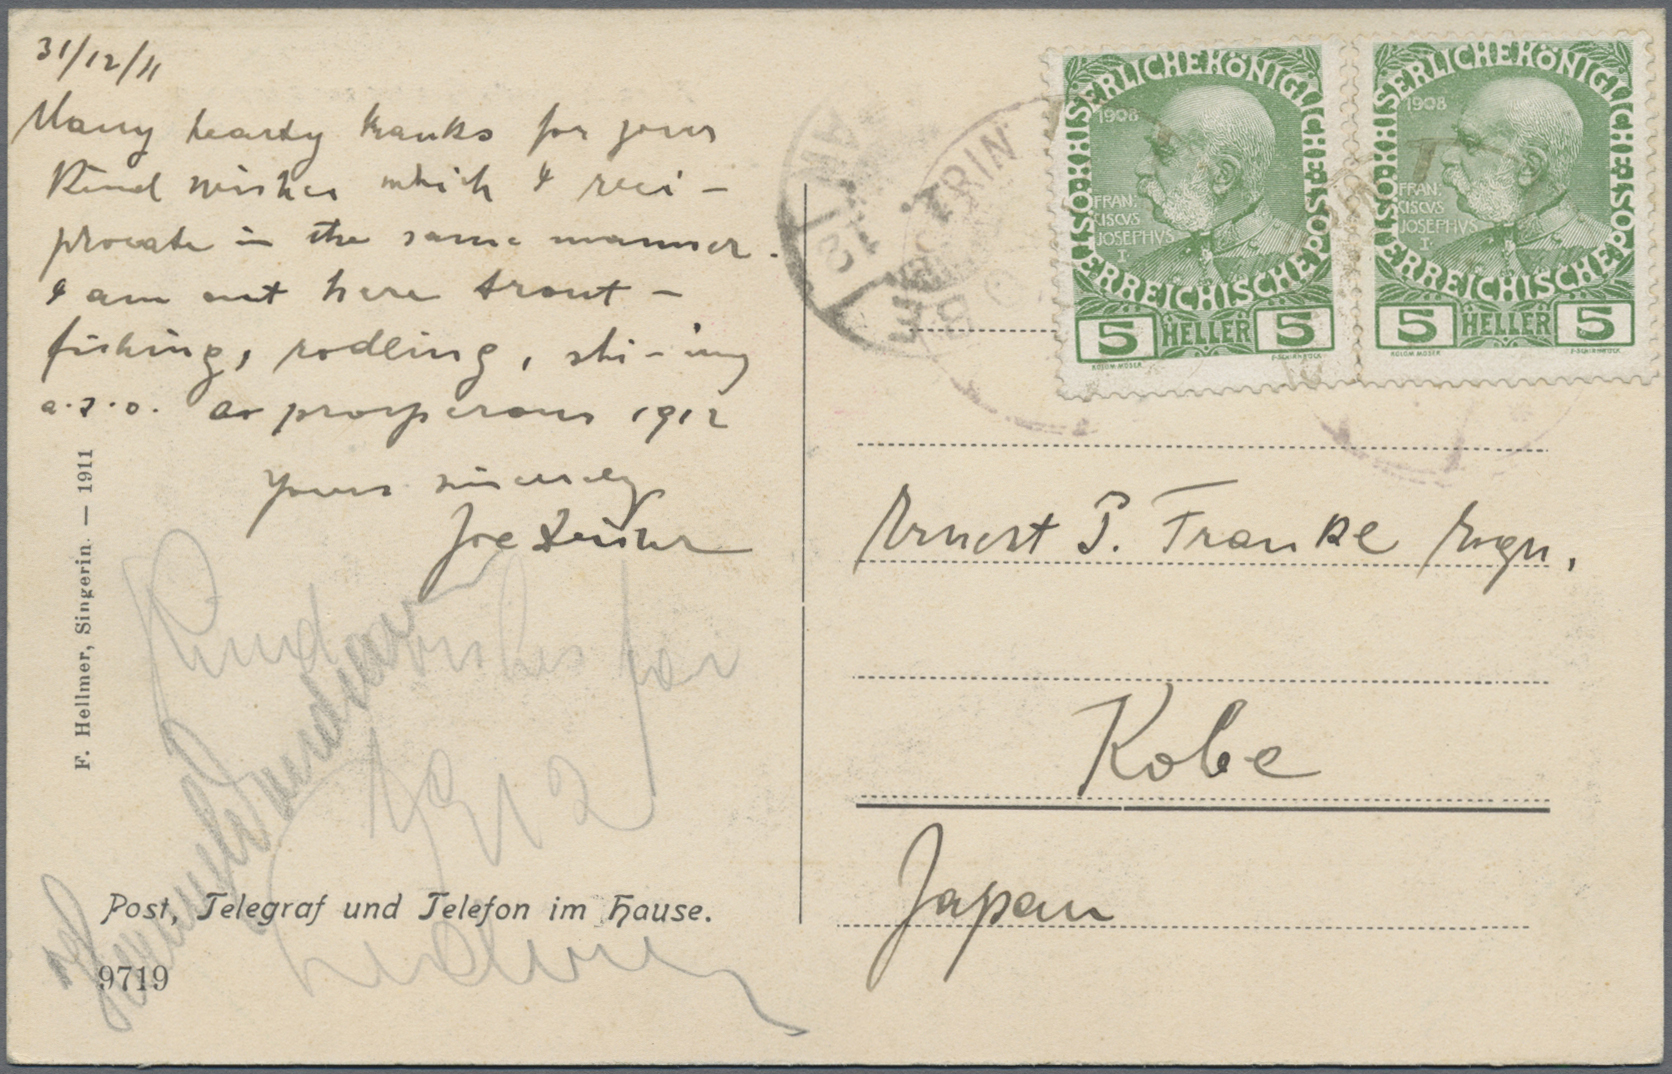 31/12/11
Many hearty thanks for your
kind wishes which I reci-
procate in the same manner.
I am out here trout-
fishing, rodling, ski-ing
a.s.o. A prosperous 1912
Yours sincerely
Joe
Kind wishes for
1912
F. Hellmer, Singerin. — 1911
Post, Telegraf und Telefon im Hause.
9719
KAISERLICHE KÖNIGLICHE ÖSTERREICHISCHE POST
1908
FRAN:
CISCVS
JOSEPHVS
I.
5 HELLER 5
KOLOM. MOSER
KAISERLICHE KÖNIGLICHE ÖSTERREICHISCHE POST
1908
FRAN:
CISCVS
JOSEPHVS
I.
5 HELLER 5
KOLOM. MOSER
Ernest P. Franke Esqu,
Kobe
Japan